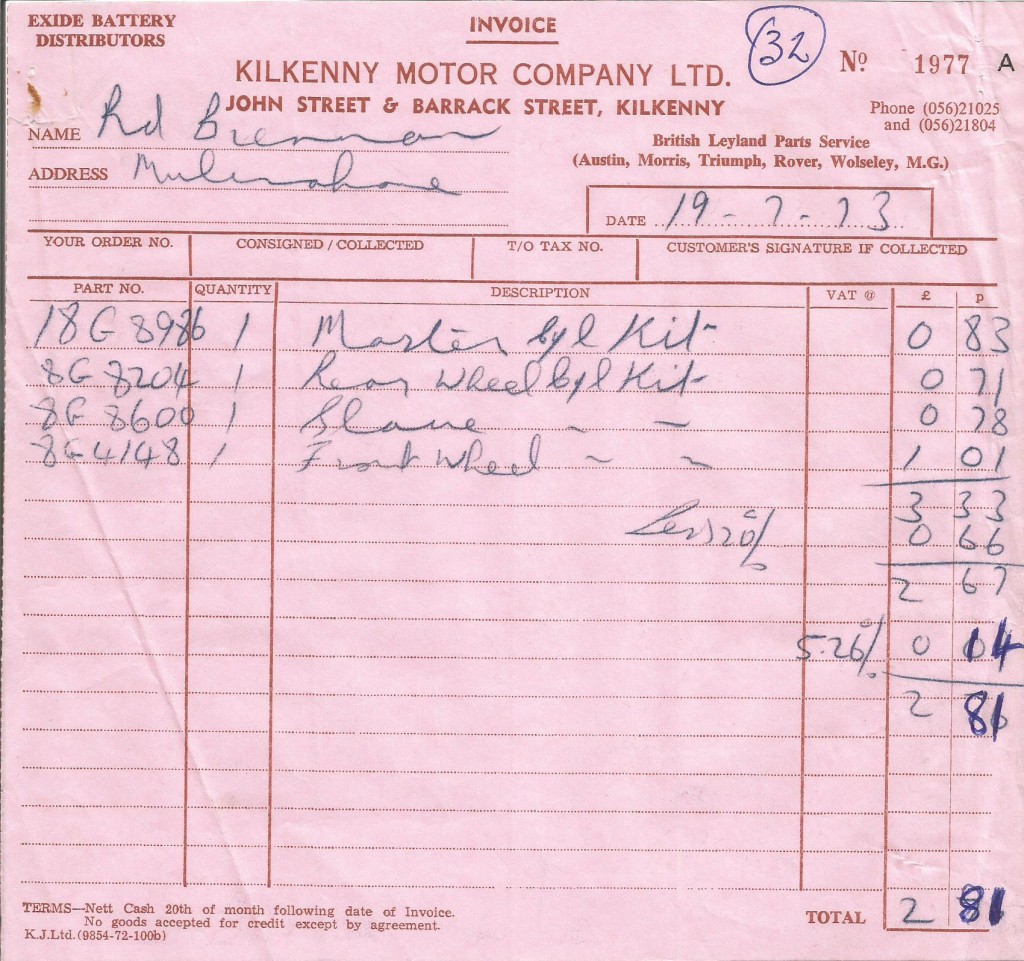 EXIDE BATTERY
DISTRIBUTORS
INVOICE
32
Nº 1977 A
KILKENNY MOTOR COMPANY LTD.
JOHN STREET & BARRACK STREET, KILKENNY
Phone (056)21025
and (056)21804
NAME Rd Brennan
British Leyland Parts Service
(Austin, Morris, Triumph, Rover, Wolseley, M.G.)
ADDRESS Mullinahone
DATE 19-7-73
YOUR ORDER NO. CONSIGNED / COLLECTED T/O TAX NO. CUSTOMER'S SIGNATURE IF COLLECTED
PART NO. QUANTITY DESCRIPTION VAT @ £ p
18G 8986 1 Master Cyl Kit 0 83
8G 8204 1 Rear Wheel Cyl Kit 0 71
8G 8600 1 Slave ~ ~ 0 78
8G 4148 1 Front Wheel ~ ~ 1 01
3 33
Less 20% 0 66
2 67
5.26% 0 14
2 81
TERMS—Nett Cash 20th of month following date of Invoice.
No goods accepted for credit except by agreement.
K.J.Ltd.(9854-72-100b)
TOTAL 2 81